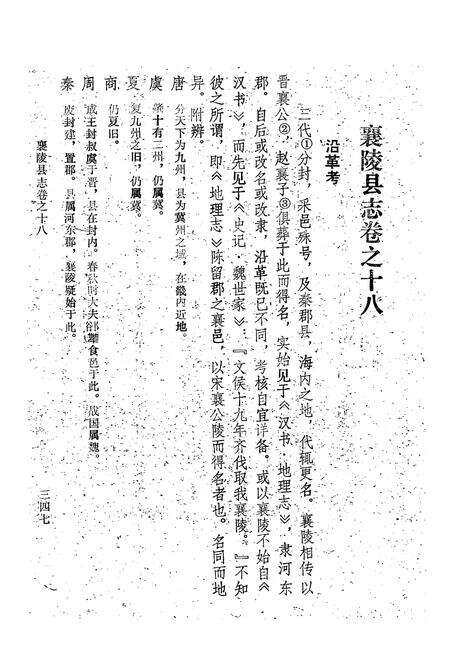 襄陵县志卷之十八
沿革考
三代①分封，采邑殊号，及秦郡县，海内之地，代辄更名。襄陵相传以
晋襄公②、赵襄子③俱葬于此而得名，实始见于《汉书·地理志》，隶河东
郡。自后或改名或改隶，沿革既已不同，考核自宜详备。或以襄陵不始自《
汉书》，而先见于《史记·魏世家》：『文侯十九年齐伐取我襄陵。』不知
彼之所谓，即《地理志》陈留郡之襄邑，以宋襄公陵而得名者也。名同而地
异。附辨。
唐 分天下为九州，县为冀州之域，在畿内近地。
虞 肇十有二州，仍属冀。
夏 复九州之旧，仍属冀。
商 仍夏旧。
周 成王封叔虞于晋，县在封内。春秋时大夫郤犨食邑于此。战国属魏。
秦 废封建，置郡。县属河东郡，襄陵疑始于此。
襄陵县志卷之十八
三四七